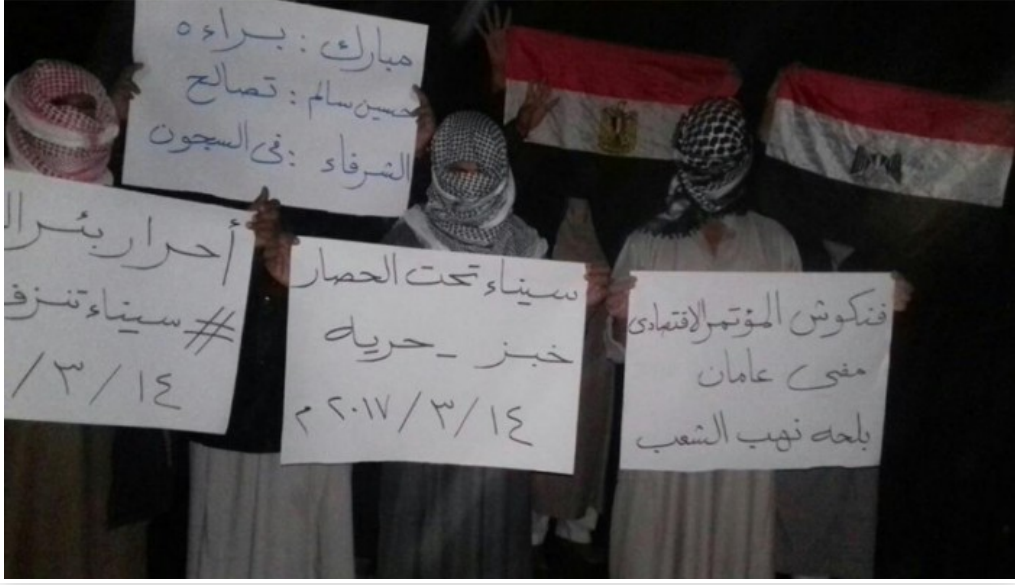 مبارك : براءه
حسين سالم : تصالح
الشرفاء : في السجون
أحرار بئر
# سيناء تنزف
١٤ / ٣ /
سيناء تحت الحصار
خبز - حريه
١٤ / ٣ / ٢٠١٧ م
فنكوش المؤتمر الاقتصادى
مضى عامان
بلحه نهب الشعب